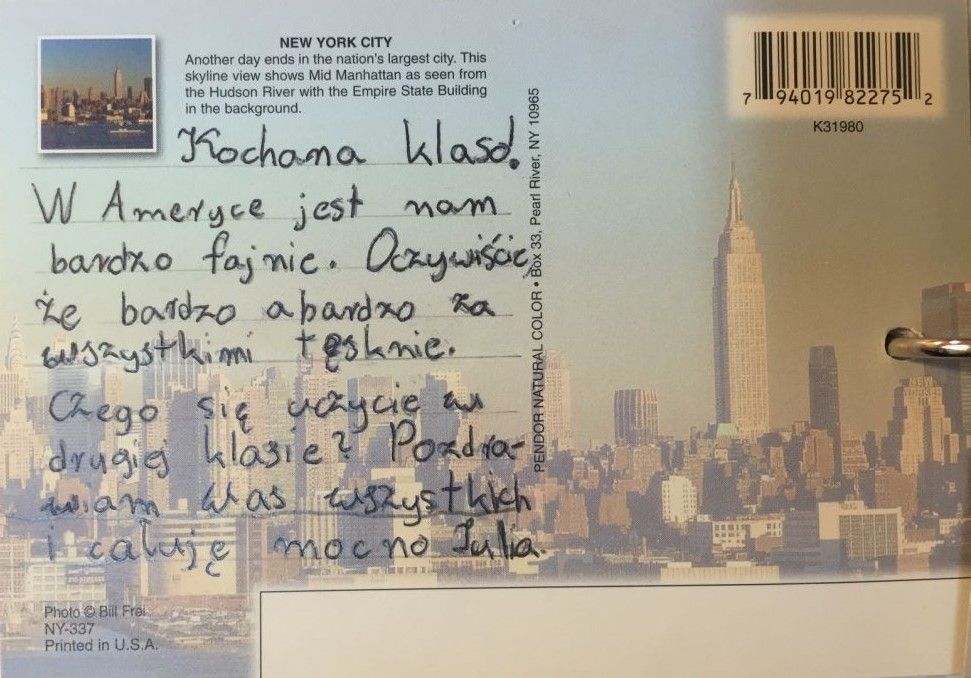 NEW YORK CITY
Another day ends in the nation's largest city. This
skyline view shows Mid Manhattan as seen from
the Hudson River with the Empire State Building
in the background.
7 94019 82275 2
K31980
Kochana klaso!
W Ameryce jest nam
bardzo fajnie. Oczywiście,
że bardzo abardzo za
wszystkimi tęsknie.
Czego się uczycie w
drugiej klasie? Pozdra-
wiam was wszystkich
i całuję mocno Julia.
PENDOR NATURAL COLOR • Box 33, Pearl River, NY 10965
Photo © Bill Frei
NY-337
Printed in U.S.A.